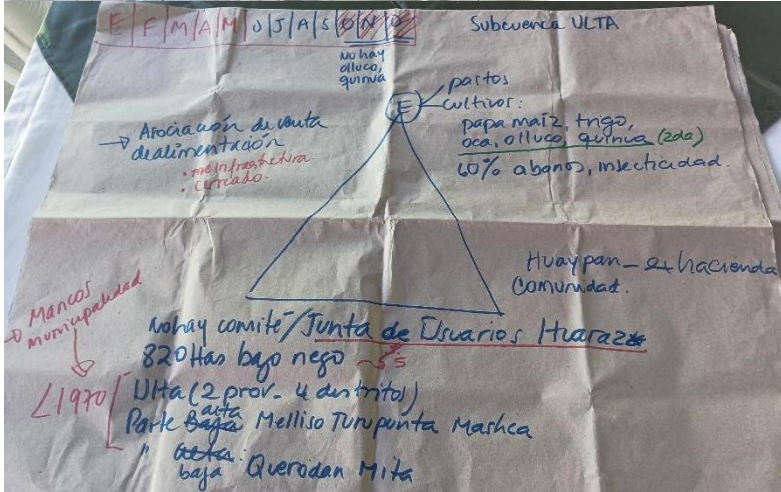 E F M A M J J A S O N D
Subcuenca ULTA
No hay
olluco,
quinua
E
pastos
cultivos:
papa maiz, trigo,
oca, olluco, quinua (2da)
60% abonos, insecticidad.
→ Asociación de venta
de alimentación
• infraestructura
• cercado.
Huaypan - ex hacienda
Comunidad.
→ Mancos
municipalidad
No hay comité / Junta de Usuarios Huaraz*
820 Has bajo riego
<1970
Ulta (2 prov. - 4 distritos)
Parte Baja alta Melliso Turupunta Mashca
" alta: baja Querodan Mita